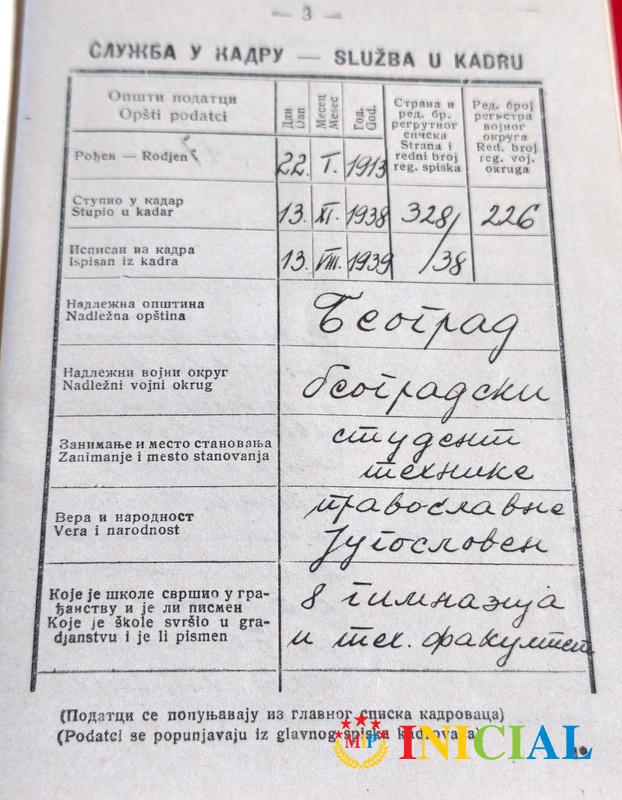 — 3 —
СЛУЖБА У КАДРУ — SLUŽBA U KADRU
Општи податци
Opšti podatci
Дан
Dan
Месец
Mesec
Год.
God.
Страна и
ред. бр.
регрутног
списка
Strana i
redni broj
reg. spiska
Ред. број
регистра
војног
округа
Red. broj
reg. voj.
okruga
Рођен — Rodjen
22. I. 1913
Ступио у кадар
Stupio u kadar
13. XI. 1938 328/ 226
Исписан из кадра
Ispisan iz kadra
13. VIII. 1939 /38
Надлежна општина
Nadležna opština
Београд
Надлежни војни округ
Nadležni vojni okrug
београдски
Занимање и место становања
Zanimanje i mesto stanovanja
студент
технике
Вера и народност
Vera i narodnost
православне
Југословен
Које је школе свршио у гра-
ђанству и је ли писмен
Koje je škole svršio u gra-
djanstvu i je li pismen
8 гимназија
и тех. факултет
(Податци се попуњавају из главног списка кадроваца)
(Podatci se popunjavaju iz glavnog spiska kadrovaca)
MIP INICIAL